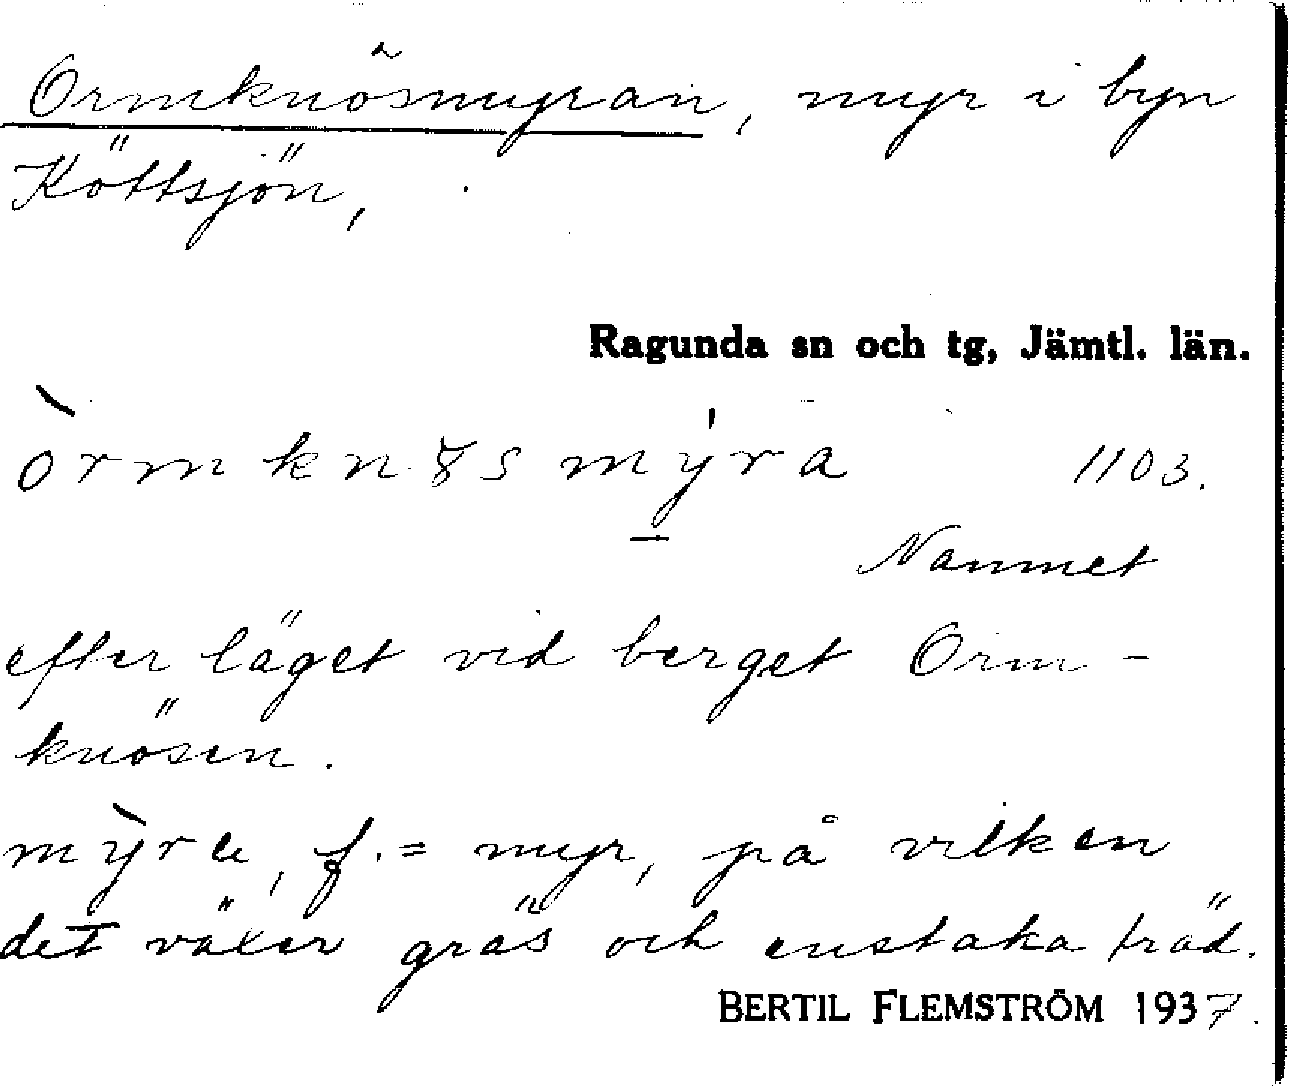 Ormknösmyran, myr i byn
Köttsjön,
Ragunda sn och tg, Jämtl. län.
òrmkn8smýra 1103.
Namnet
efter läget vid berget Orm-
knösen.
mỳra, f. = myr, på vilken
det växer gräs och enstaka träd.
BERTIL FLEMSTRÖM 1937.